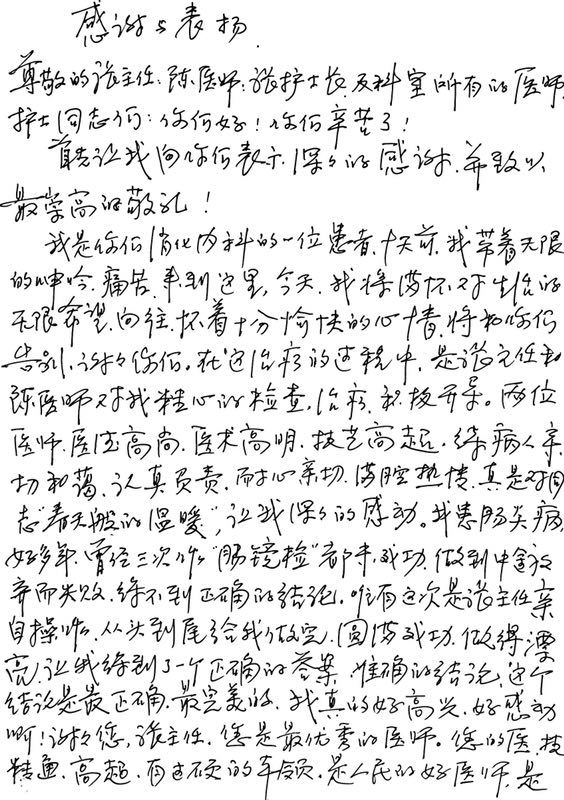 感谢与表扬
尊敬的张主任、陈医师、张护士长及科室所有的医师
护士同志们：你们好！你们辛苦了！
首先让我向你们表示深深的感谢，并致以
最崇高的敬礼！
我是你们消化内科的一位患者，十天前，我带着无限
的呻吟、痛苦，来到这里，今天，我将满怀对生活的
无限希望、向往，怀着十分愉快的心情，将和你们
告别，谢谢你们。在这治疗的过程中，是张主任和
陈医师对我精心的检查，治疗，积极开导。两位
医师，医德高尚，医术高明，技艺高超，待病人亲
切和蔼，认真负责，而耐心亲切，满腔热情，真是对同
志"春天般的温暖"，让我深深的感动。我患肠炎病
好多年，曾经三次作"肠镜检"都未成功，做到中途放
弃而失败，得不到正确的结论。唯有这次是张主任亲
自操作，从头到尾给我做完，圆满成功，做得漂
亮，让我得到了一个正确的答案，准确的结论，这个
结论是最正确、最完美的，我真的好高兴，好感动
啊！谢谢您，张主任，您是最优秀的医师。您的医技
精通、高超，有过硬的本领，是人民的好医师，是